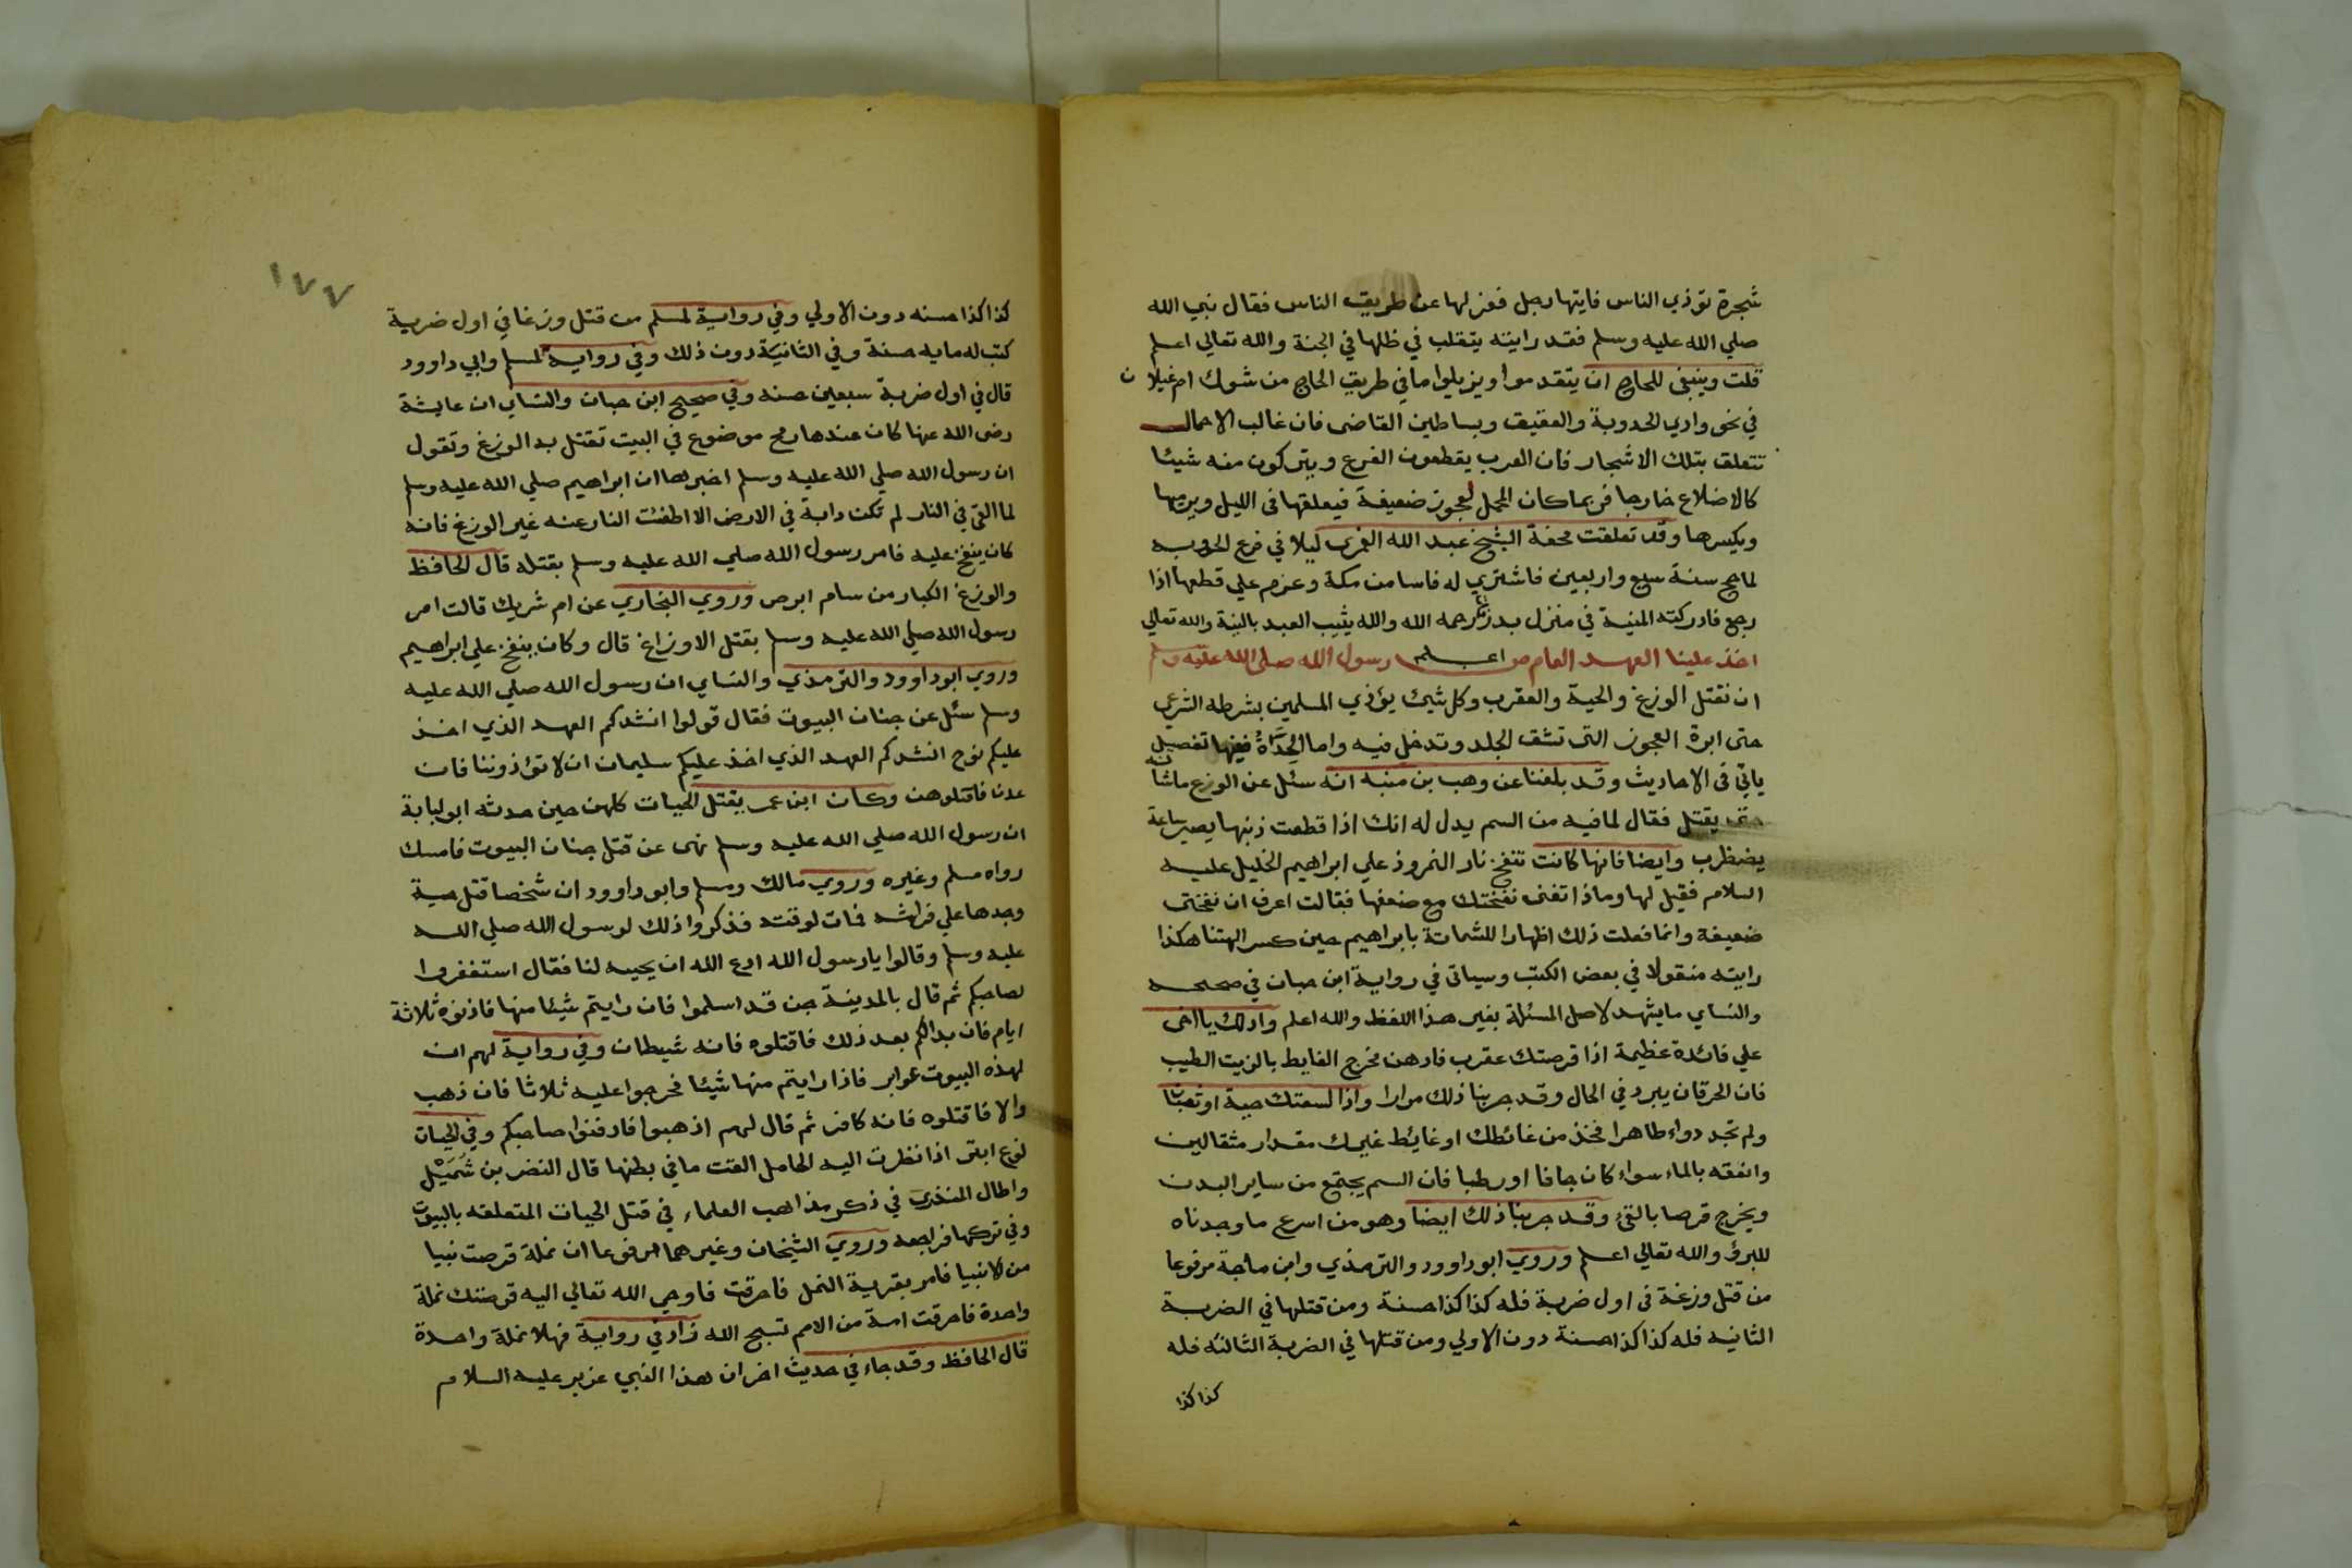 شجرة تؤذي الناس فايتها رجل فعزلها عن طريق الناس فقال نبي الله
صلي الله عليه وسلم فقد رايته يتقلب في ظلها في الجنة والله تعالي اعلم
قلت وينبغى للحاج ان يتقدموا ويزيلوا ما في طريق الحاج من شوك ام غيلان
في نحو وادي الخروبة والعقيق وبساطين القاضى فان غالب الاحمال
تتعلق بتلك الاشجار فان العرب يقطعون الفرع ويتركون منه شيئا
كالاضلاع خارجا فربما كان المحمل لعجوز ضعيفة فيعلقها فى الليل ويرميها
ويكسرها وقد تعلقت محفة الشيخ عبد الله الغمرى ليلا في فرع الخروبه
لما حج سنة سبع واربعين فاشترى له فاسا من مكة وعزم علي قطعها اذا
رجع فادركته المنية في منزل بدر رحمه الله والله يثيب العبد بالنية والله تعالي
اعلم
اخذ علينا العهد العام من رسول الله صلى الله عليه وسلم
ان نقتل الوزغ والحية والعقرب وكل شيئ يؤذي المسلمين بشرطه الشرعي
حتى ابرة العجوز التى تشق الجلد وتدخل فيه واما الحِدَأةُ ففيها تفصيل
ياتي فى الاحاديث وقد بلغنا عن وهب بن منبه انه سئل عن الوزغ ماشانه
حتى يقتل فقال لما فيه من السم يدل له انك اذا قطعت ذنبها يصير ساعة
يضطرب وايضا فانها كانت تنفخ نار النمروذ علي ابراهيم الخليل عليه
السلام فقيل لها وماذا تغنى نفختك مع ضعفها فقالت اعرف ان نفختى
ضعيفة وانما فعلت ذلك اظهارا للشماتة بابراهيم حين كسر الهتنا هكذا
رايته منقولا في بعض الكتب وسياتى في رواية ابن حبان في صحيحه
والنساي ما يشهد لاصل المسئلة بغير هذا اللفظ والله اعلم وادلك يا اخى
علي فائدة عظيمة اذا قرصتك عقرب فادهن مخرج الغايط بالزيت الطيب
فان الحرقان يبرد في الحال وقد جربنا ذلك مرارا واذا لسعتك حية او ثعبان
ولم تجد دواء طاهرا فخذ من غائطك او غائط غيرك مقدار مثقالين
وانفقه بالماء سواء كان جافا او رطبا فان السم يجتمع من ساير البدن
ويخرج قرصا بالقئ وقد جربنا ذلك ايضا وهو من اسرع ما وجدناه
للبرؤ والله تعالي اعلم وروي ابو داوود والترمذي وابن ماجة مرفوعا
من قتل وزغة فى اول ضربة فله كذا كذا حسنة ومن قتلها في الضربة
الثانيه فله كذا كذا حسنة دون الاولي ومن قتلها في الضربة الثالثه فله
كذا كذا
١٧٧
كذا كذا حسنه دون الاولي وفي رواية لمسلم من قتل وزغا في اول ضربة
كتب له مايه حسنة وفي الثانية دون ذلك وفي رواية لمسلم وابي داوود
قال في اول ضربة سبعين حسنه وفي صحيح ابن حبان والنساي ان عايشة
رضى الله عنها كان عندها رمح موضوع في البيت تقتل به الوزغ وتقول
ان رسول الله صلي الله عليه وسلم اخبرها ان ابراهيم صلي الله عليه وسلم
لما القي في النار لم تكن دابة في الارض الا اطفئت النار عنه غير الوزغ فانه
كان ينفخ عليه فامر رسول الله صلي الله عليه وسلم بقتله قال الحافظ
والوزغ الكبار من سام ابرص وروي البخاري عن ام شريك قالت امر
رسول الله صلي الله عليه وسلم بقتل الاوزاغ قال وكان ينفخ علي ابراهيم
وروي ابو داوود والترمذي والنساي ان رسول الله صلي الله عليه
وسلم سئل عن جنان البيوت فقال قولوا انشدكم العهد الذي اخذ
عليكم نوح انشدكم العهد الذي اخذ عليكم سليمان ان لا تؤذوننا فان
عدن فاقتلوهن وكان ابن عمر يقتل الحيات كلهن حين حدثه ابو لبابة
ان رسول الله صلي الله عليه وسلم نهى عن قتل جنان البيوت فامسك
رواه مسلم وغيره وروي مالك ومسلم وابو داوود ان شخصا قتل حية
وجدها علي فراشه فمات لوقته فذكروا ذلك لرسول الله صلي الله
عليه وسلم وقالوا يارسول الله ادع الله ان يحييه لنا فقال استغفروا
لصاحبكم ثم قال بالمدينة جن قد اسلموا فان رايتم شيئا منها فاذنوه ثلاثة
ايام فان بدالكم بعد ذلك فاقتلوه فانه شيطان وفي رواية لهم ان
لهذه البيوت عوامر فاذا رايتم منها شيئا فحرجوا عليه ثلاثا فان ذهب
والا فاقتلوه فانه كافر ثم قال لهم اذهبوا فادفنوا صاحبكم وفي الحيات
نوع ابتر اذا نظرت اليه الحامل القت ما في بطنها قال النضر بن شُمَيْل
واطال المنذرى في ذكر مذاهب العلماء في قتل الحيات المتعلقه بالبيوت
وفي تركها فراجعه وروي الشيخان وغيرهما مرفوعا ان نملة قرصت نبيا
من الانبيا فامر بقرية النمل فاحرقت فاوحي الله تعالي اليه قرصتك نملة
واحدة فاحرقت امة من الامم تسبح الله زاد في رواية فهلا نملة واحدة
قال الحافظ وقد جاء في حديث اخر ان هذا النبي عزير عليه السلام